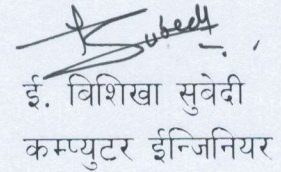 Subedi
ई. विशिखा सुवेदी
कम्प्युटर ईन्जिनियर